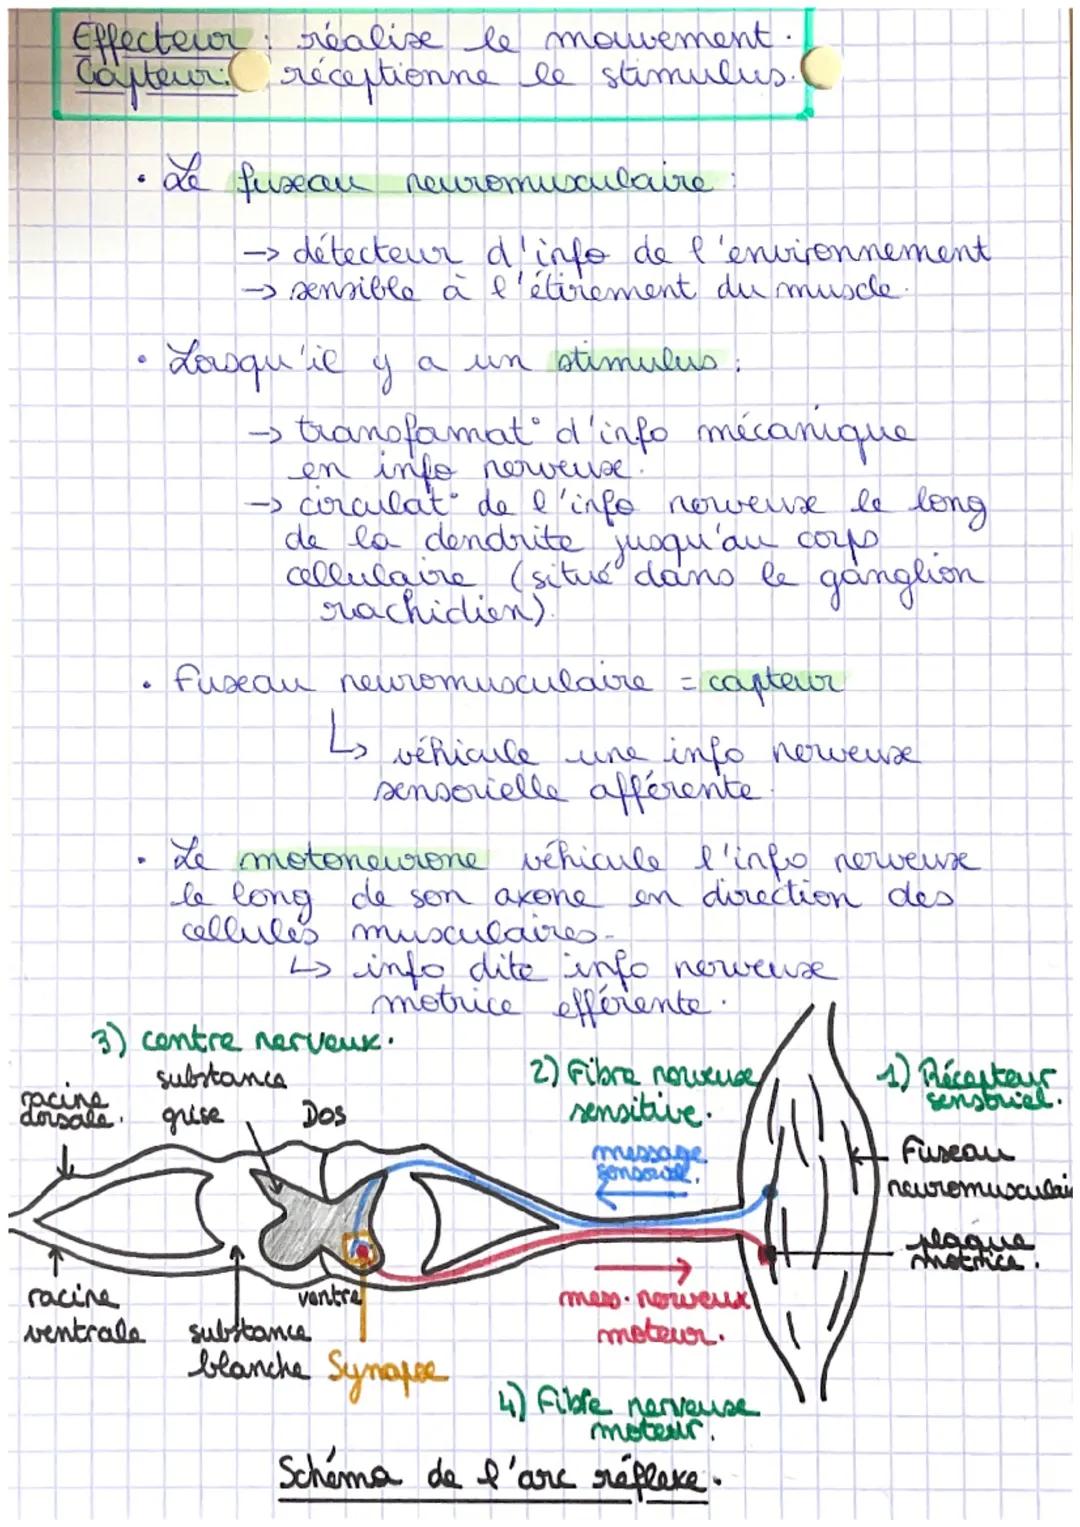 Effecteur : réalise le mouvement.
Capteur: réceptionne le stimulus.
• Le fuseau neuromusculaire :
→ détecteur d'info de l'environnement
→ sensible à l'étirement du muscle.
• Lorsqu'il y a un stimulus :
→ transformat° d'info mécanique
en info nerveuse.
→ circulat° de l'info nerveuse le long
de la dendrite jusqu'au corps
cellulaire (situé dans le ganglion
rachidien).
• Fuseau neuromusculaire = capteur
↳ véhicule une info nerveuse
sensorielle afférente.
• Le motoneurone véhicule l'info nerveuse
le long de son axone en direction des
cellules musculaires.
↳ info dite info nerveuse
motrice efférente.
3) centre nerveux.
racine
dorsale.
substance
grise
Dos
2) Fibre nerveuse
sensitive.
message
sensoriel.
1) Récepteur
sensoriel.
Fuseau
neuromusculai
plaque
motrice.
racine
ventrale
substance
blanche
ventre
Synapse
mess. nerveux
moteur.
4) Fibre nerveuse
moteur.
Schéma de l'arc réflexe.